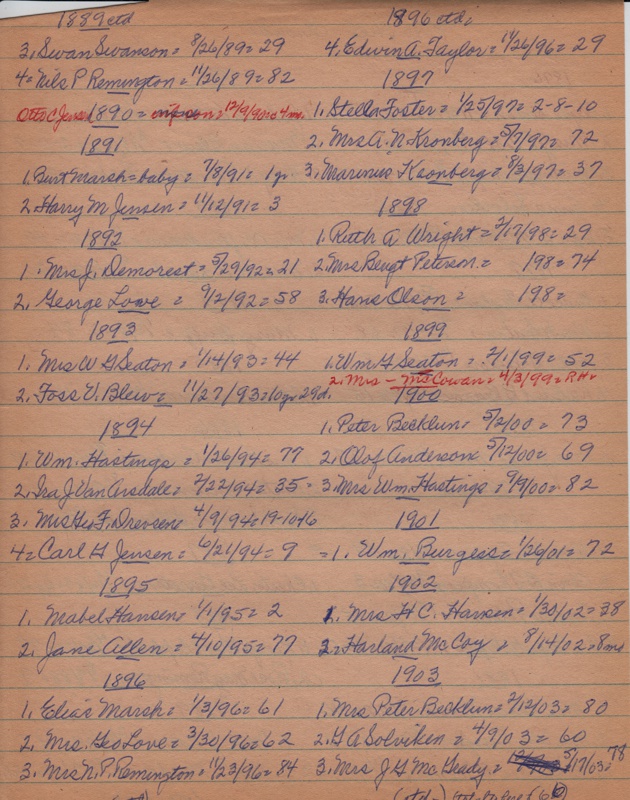 1889 ctd
3. Swan Swanson = 8/26/89 = 29
4 = Nils P Remington = 11/26/89 = 82
Otto C Jensen 1890 = = 12/9/90 = 4 mo.
1891
1. Burt Marsh = baby = 7/8/91 = 1 yr.
2. Harry M Jensen = 11/12/91 = 3
1892
1. Mrs J. Demorest = 5/29/92 = 21
2. George Lowe = 9/2/92 = 58
1893
1. Mrs W G Seaton = 1/14/93 = 44
2. Foss V. Blew = 11/27/93 = 10 yr 29 d.
1894
1. Wm. Hastings = 1/26/94 = 77
2. Ira J Van Arsdale = 2/22/94 = 35 =
3. Mrs Geo F. Drevsen = 4/9/94 = 19-10-16
4 = Carl G Jensen = 6/21/94 = 9
1895
1. Mabel Hansen = 1/1/95 = 2
2. Jane Allen = 4/10/95 = 77
1896
1. Elias Marsh = 1/3/96 = 61
2. Mrs. Geo Love = 3/30/96 = 62
3. Mrs N. P. Remington = 11/23/96 = 84
1896 ctd.
4. Edwin A. Taylor = 11/26/96 = 29
1897
1. Stella Foster = 1/25/97 = 2-8-10
2. Mrs A. N Kronberg = 5/7/97 = 72
3. Marinus Kronberg = 8/3/97 = 37
1898
1. Ruth A Wright = 2/17/98 = 29
2. Mrs Bengt Peterson = 198 = 74
3. Hans Olson = 198 =
1899
1. Wm G Seaton = 2/1/99 = 52
2. Mrs - McCowan = 4/3/99 = RH =
1900
1. Peter Becklun = 5/2/00 = 73
2. Olof Anderson = 5/12/00 = 69
3. Mrs Wm. Hastings = 9/9/00 = 82
1901
= 1. Wm. Burgess = 1/26/01 = 72
1902
1. Mrs H C. Hansen = 1/30/02 = 38
2. Harland McCoy = 8/14/02 = 8 ms
1903
1. Mrs Peter Becklun = 2/12/03 = 80
2. G A Solviken = 4/9/03 = 60
3. Mrs J G McGrady = 5/17/03 = 78
(ctd)